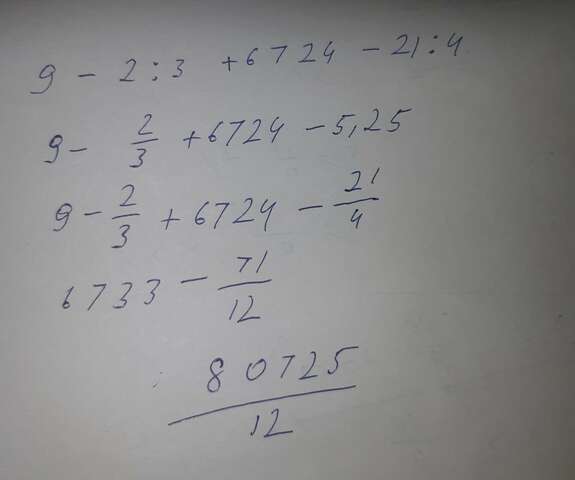 9 - 2 : 3 + 6724 - 21 : 4
9 - 2/3 + 6724 - 5,25
9 - 2/3 + 6724 - 21/4
6733 - 71/12
80725/12